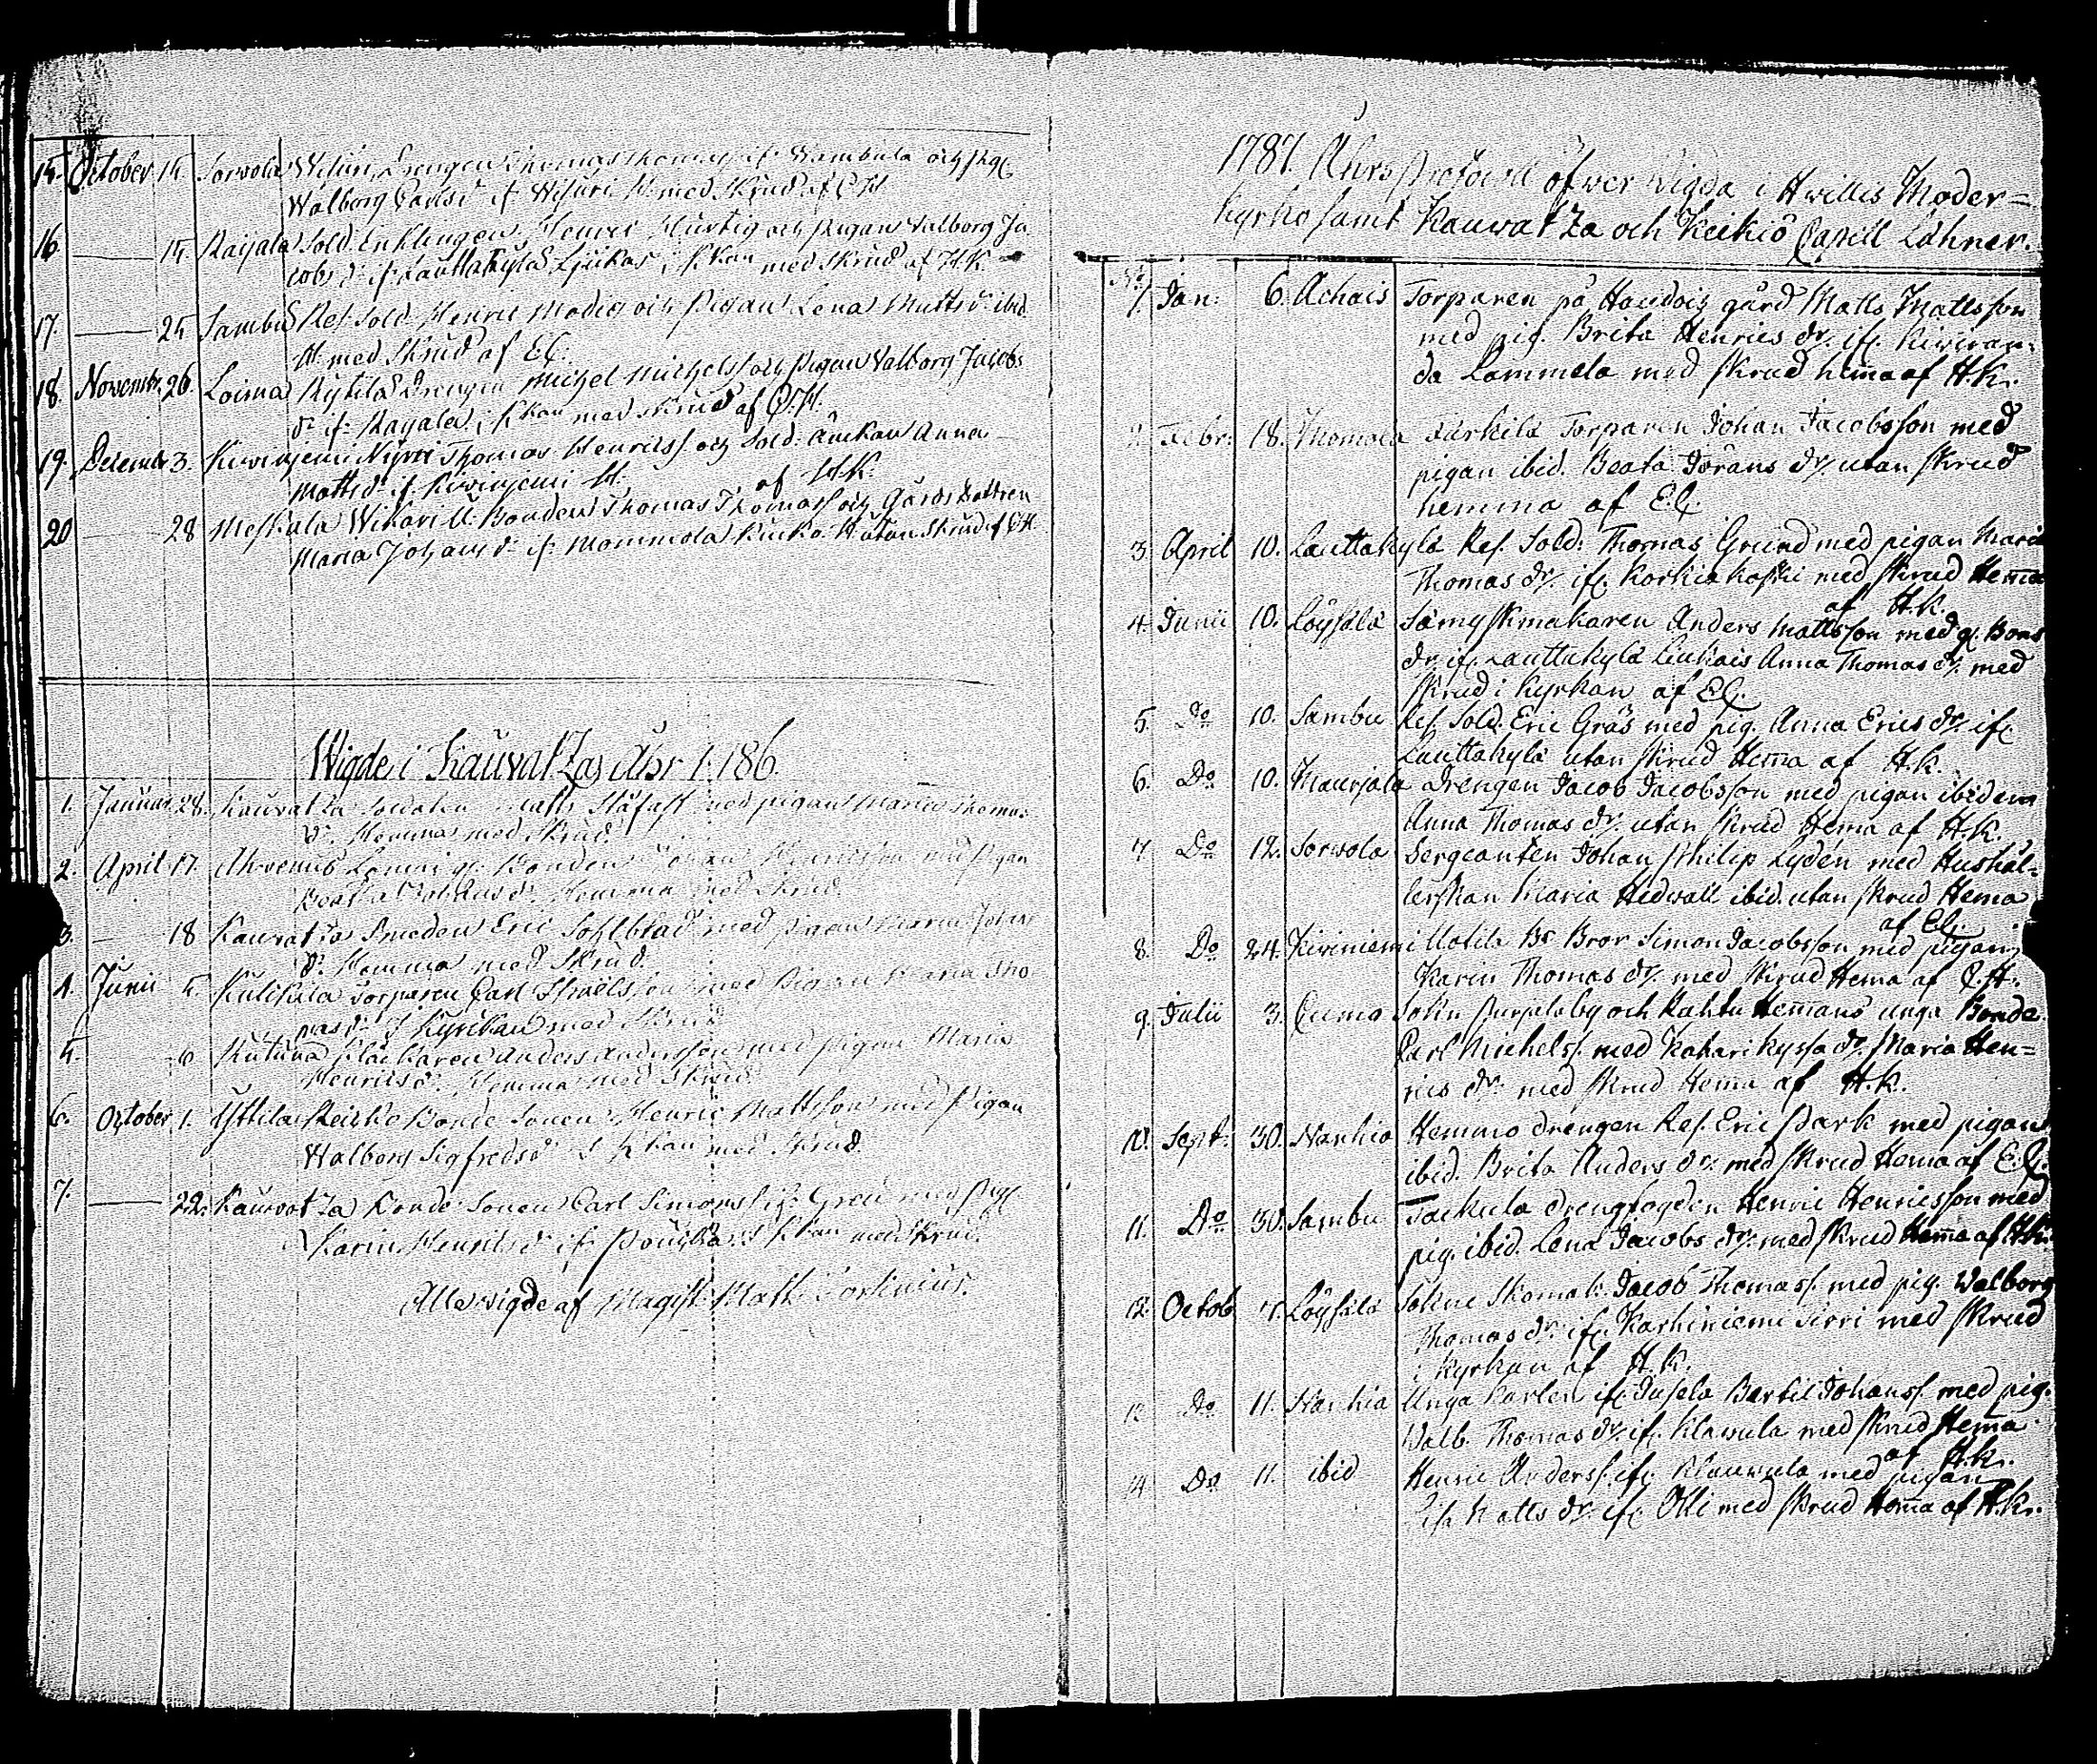 15. October 15. Sorvola Wisuri Drengen Thomas Thomass. if. Wambula och pig.
Walborg Carls dr if Wisuri H. med Skrud af C.H.
16. 15. Raijala Sold. Enklingen Henric Hurtig och Pigan Valborg Ja
cobs dr if. Lauttakylä Ljukas i Kkan med Skrud af H.K.
17. 25 Sambu Ref. Sold. Henric Modig och Pigan Lena Matts dr ibid.
H. med Skrud af E.C.
18. Novembr. 26. Loima Kytilä Drengen Michel Michelss. och Pigan Valborg Jacobs
dr if. Rayala i Kkan med Skrud af C.H.
19. Decembr 3. Kiwinjemi Nyrri Thomas Henrikss och Sold. Änckan Anna
Matts dr if. Kiwinjemi H. af H.K.
20 28 Meskala Wikari U. Bonden Thomas Thomass och Gårds Dottren
Maria Johans dr if. Mommola H. utan Skrud af C.H.
Wigde i Kauvatza Åhr 1786.
1. Januar. 28. Kauvatza Soldaten Matts Stäfast med pigan Maria Thomas
dr. Hemma med Skrud.
2. April 17. Ahvenus Lammi gl. Bonden Johan Henricsson med Pigan
Beata Johans dr. Hemma med Skrud.
3. 18 Kauvatza Smeden Eric Sohlblad med Pigan Maria Johans
dr. Hemma med Skrud.
4. Junii 5. Kulikala Torparen Carl med Pigan Maria Tho
mas dr. I Kyrckan med Skrud
5. 6 Anders Andersson med Pigan Maria
Henrics dr. Hemma med Skrud.
6. October 1. Yttila Bonde Sonen Henric Mattsson med Pigan
Walborg Sigfreds dr i Kkan med Skrud.
7. 22. Kauvatza Bonde Sonen Carl Simonss if. med Pig.
Karin Henriks dr if i Kkan med Skrud.
Alla wigde af Magist. Math.
1787. Åhrs Protocoll öfwer Wigda i Hwittis Moder=
kyrko samt Kauwatza och Keikiö Capell Låhner.
No.
1. Jan: 6. Achais Torparen på gård Matts Mattsson
med pig. Brita Henrics dr. if. Kiwiran=
da Lammela med skrud hemma af H.K.
2. Febr: 18. Mommola Särkilä Torparen Johan Jacobsson med
pigan ibid. Beata Jörans dr. utan skrud
hemma af E.C.
3. April 10. Lauttakylä Ref. Sold: Thomas Grund med pigan Maria
Thomas dr. if. Korkiakoski med skrud Hemma
af H.K.
4. Junii 10. Löysälä Sämyskmakaren Anders Mattsson med gl. Bons
dr. if. Lauttakylä Liukais Anna Thomas dr. med
skrud i kyrkan af E.C.
5. Do 10. Sambu Ref. Sold. Eric Gräs med pig. Anna Erics dr. if.
Lauttakylä utan skrud Hemma af H.K.
6. Do 10. Maurjala Drengen Jacob Jacobsson med pigan ibidem
Anna Thomas dr. utan skrud Hema af H.K.
7. Do 12. Sorwola Sergeanten Johan Philip Lydén med Hushål=
lerskan Maria Hedwall ibid. utan skrud Hema
af E.C.
8. Do 24. Kiviniemi Uotila Bs Bror Simon Jacobsson med pigan
Karin Thomas dr. med skrud Hema af C.H.
9. Julii 3. Cumo Sokn och Kahtu Hemmans unga Bonde
Carl Michelss. med Kakarikyssa dr. Maria Hen=
rics dr. med skrud Hemma af H.K.
10. Sept: 30. Nanhia Hemmo drengen Ref. Eric Park med pigan
ibid. Brita Anders dr. med skrud Hema af E.C.
11. Do 30. Sambu Tackula drengfogden Henric Henricsson med
pig. ibid. Lena Jacobs dr. med skrud Hemma af H.K.
12. Octob 7. Löysälä Sokne Skomak. Jacob Thomass. med pig. Walborg
Thomas dr. if. Karhiniemi Sirri med skrud
i kyrkan af H.K.
13 Do 11. Nanhia Unga karlen if. Jusela Bertil Johanss. med pig.
Walb. Thomas dr. if. Klawula med skrud Hemma
af H.K.
14 Do 11. ibid Henric Anderss. if. Klauwula med pigan
Lisa Matts dr. if. Olli med skrud Homma af H.K.